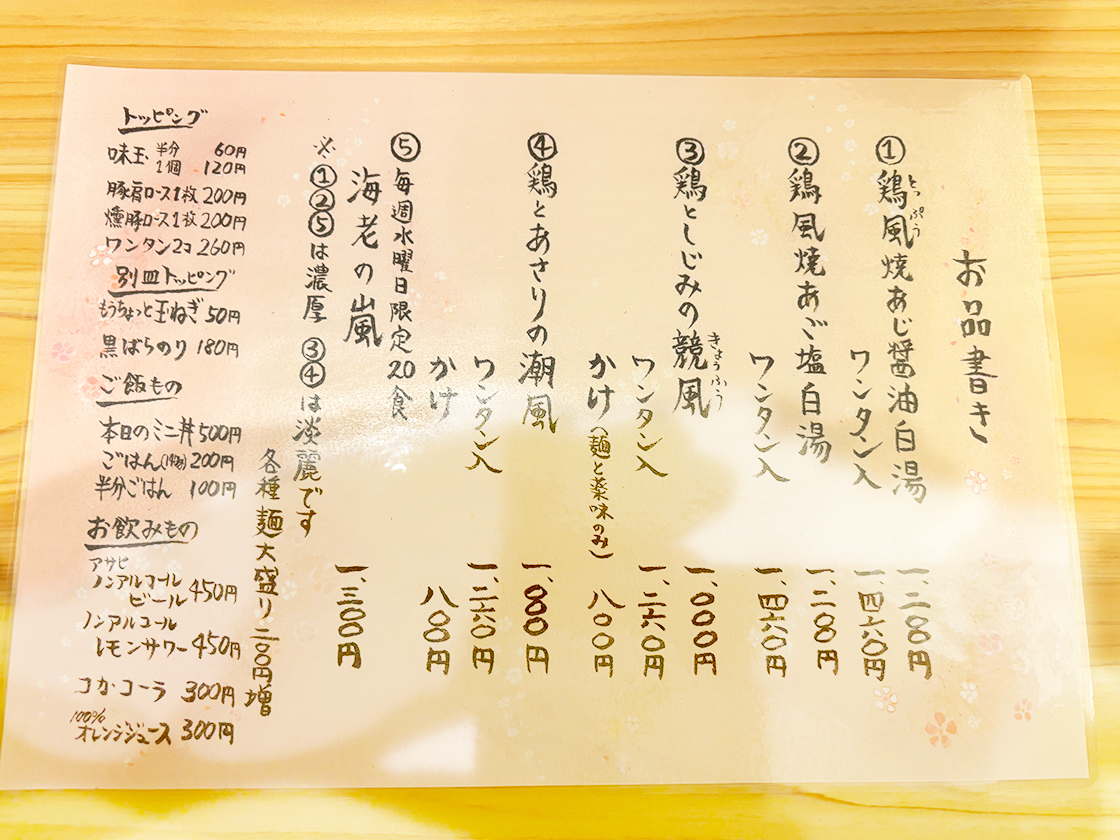 お品書き
①鶏風焼あじ醤油白湯 一、二〇〇円
とっぷう
ワンタン入 一、四六〇円
②鶏風焼あご塩白湯 一、二〇〇円
ワンタン入 一、四六〇円
③鶏としじみの競風 一、〇〇〇円
きょうふう
ワンタン入 一、二六〇円
かけ（麺と薬味のみ） 八〇〇円
④鶏とあさりの潮風 一、〇〇〇円
ワンタン入 一、二六〇円
かけ 八〇〇円
⑤毎週水曜日限定20食
海老の嵐 一、三〇〇円
※①②⑤は濃厚 ③④は淡麗です
各種麺大盛り二〇〇円増
トッピング
味玉 半分 60円
1個 120円
豚肩ロース1枚 200円
燻豚ロース1枚 200円
ワンタン2コ 260円
別皿トッピング
もうちょっと玉ねぎ 50円
黒ばらのり 180円
ご飯もの
本日のミニ丼 500円
ごはん 200円
半分ごはん 100円
お飲みもの
アサヒ
ノンアルコール
ビール 450円
ノンアルコール
レモンサワー 450円
コカ・コーラ 300円
100%
オレンジジュース 300円